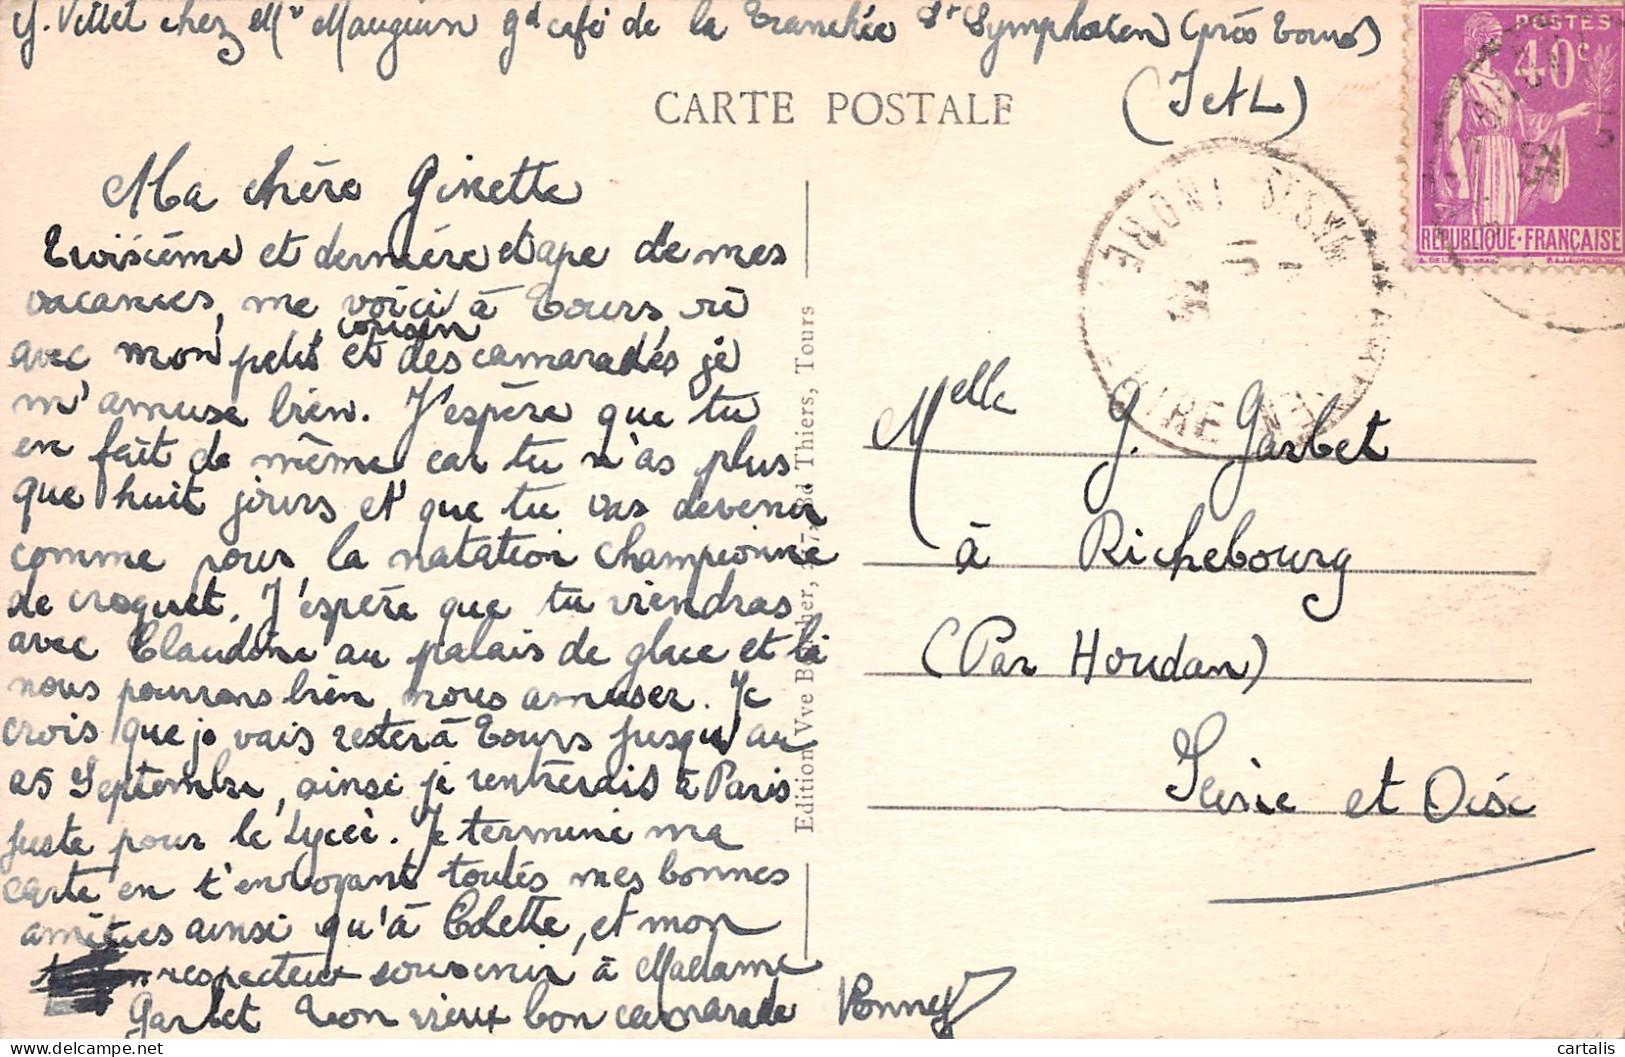 Y. Vettet chez Mr Mauguin gd café de la Tranchée St Symphorien (près Tours)
(I et L)
CARTE POSTALE
POSTES
40c
REPUBLIQUE·FRANÇAISE
Ma chère Ginette
Troisième et dernière étape de mes
vacances, me voici à Tours, où
avec mon petit cousin et des camarades je
m'amuse bien. J'espère que tu
en fait de même car tu n'as plus
que huit jours et que tu vas devenir
comme pour la natation championne
de croquet. J'espère que tu viendras
avec Claudine au palais de glace et là
nous pourrons bien nous amuser. Je
crois que je vais rester à Tours jusqu'au
25 Septembre, ainsi je rentrerais à Paris
juste pour le Lycée. Je termine ma
carte en t'envoyant toutes mes bonnes
amitiés ainsi qu'à Colette, et mon
respectueux souvenir à Madame
Garbet Ton vieux bon camarade
Edition Vve Bd Thiers, Tours
Melle G. Garbet
à Richebourg
(Par Houdan)
Seine et Oise
cartalis